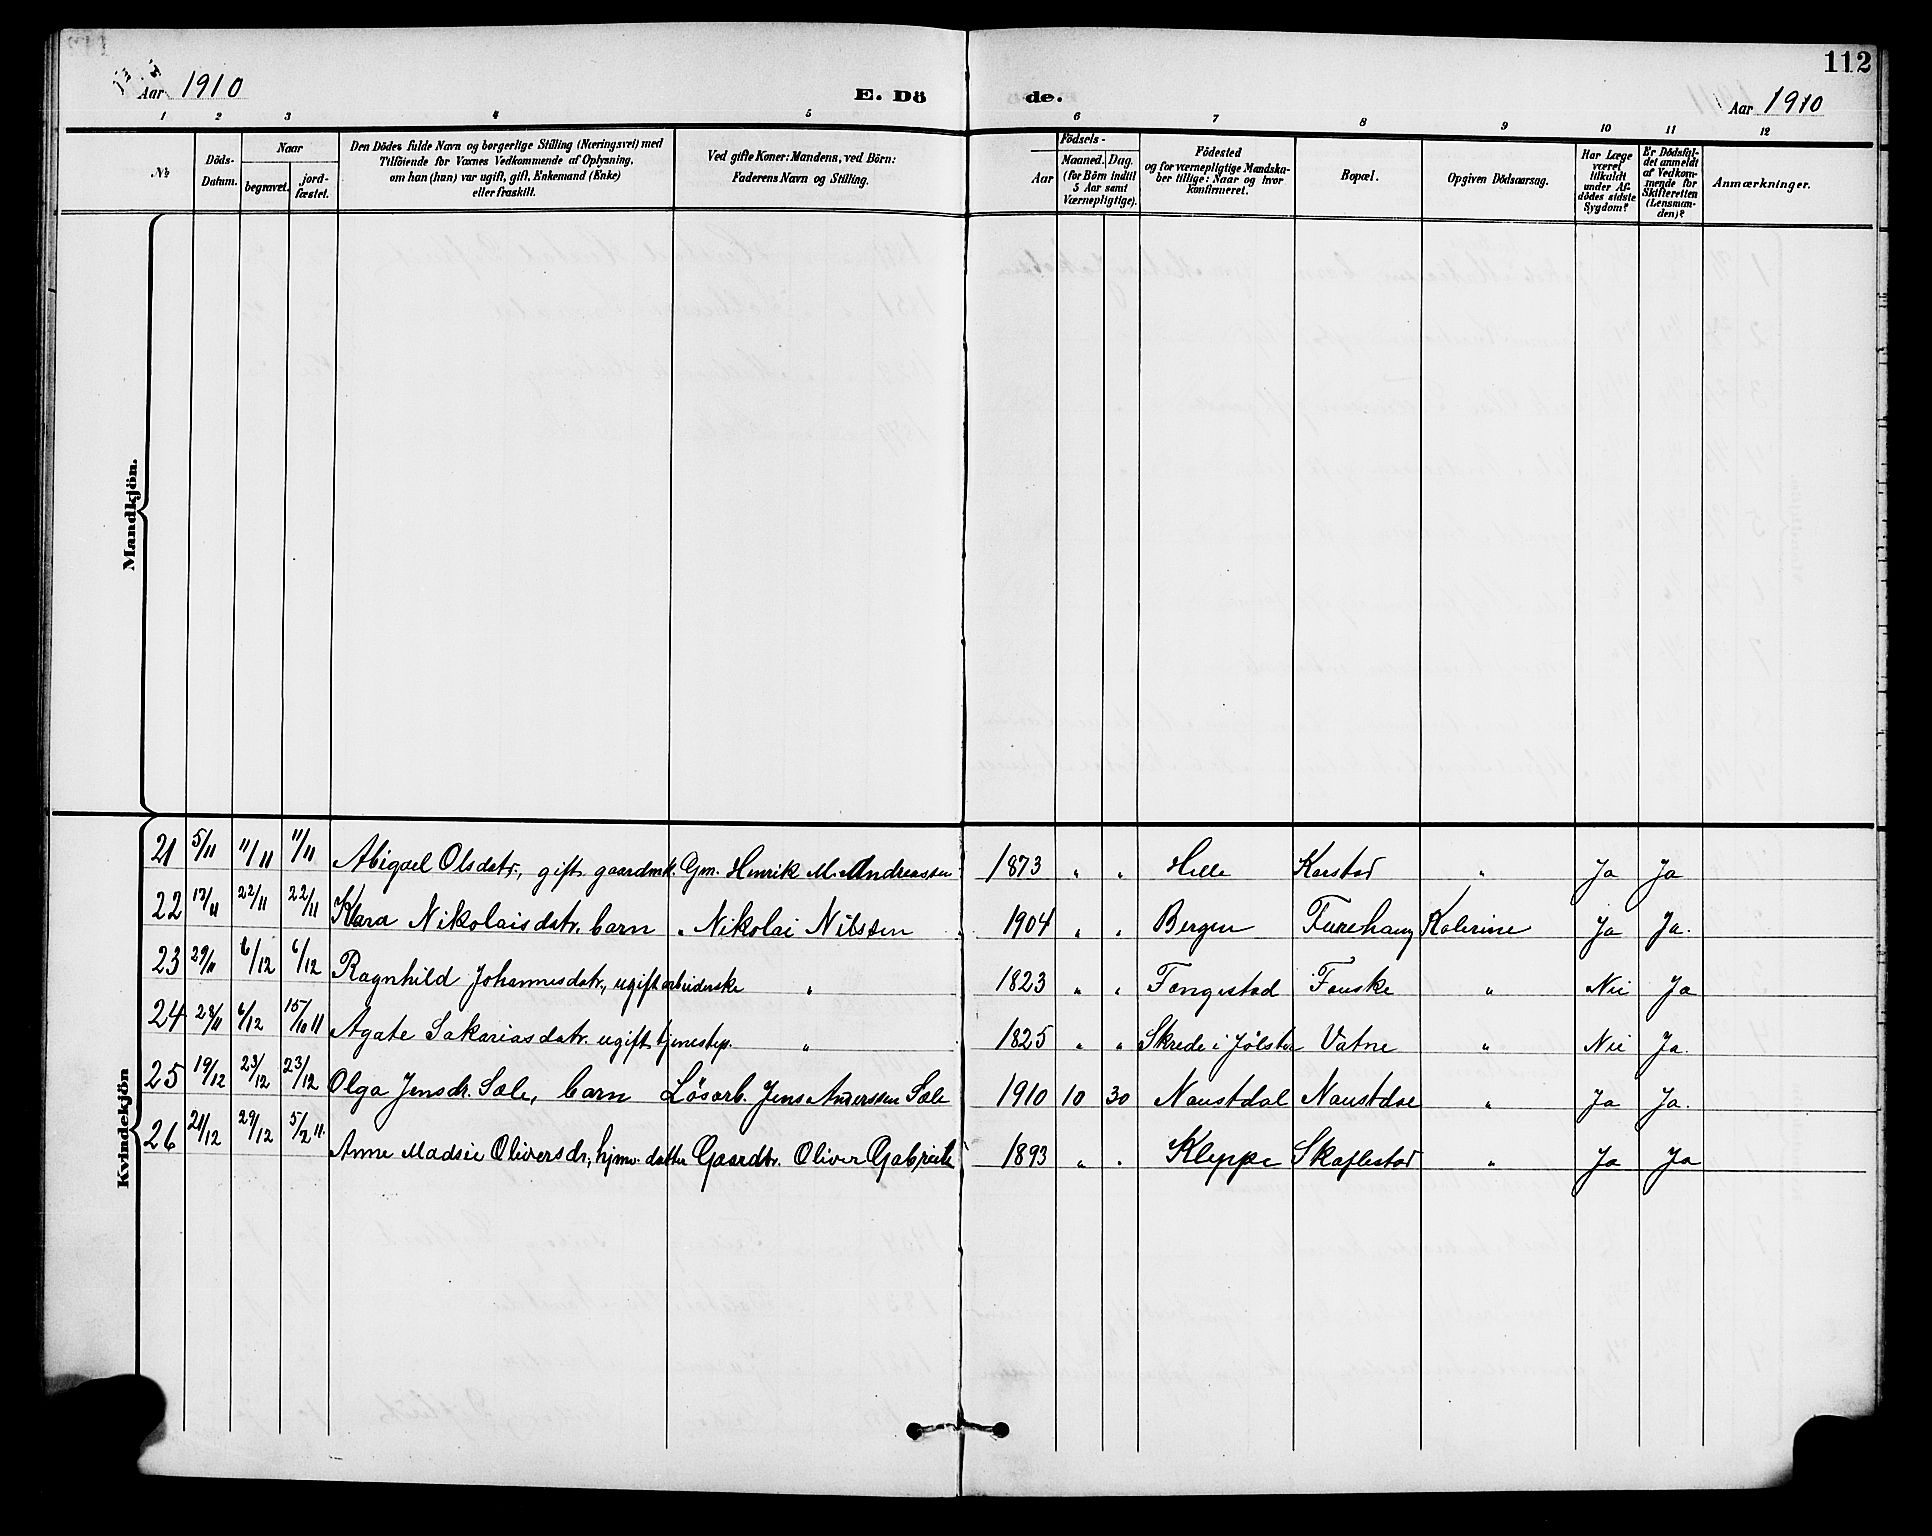 112
Aar 1910
E. Dö de.
Aar 1910
1 2 3 4 5 6 7 8 9 10 11 12
No
Döds-Datum.
Naar
begravet.
jord-fæstet.
Den Dödes fulde Navn og borgerlige Stilling (Næringsvei) med
Tilföiende for Voxnes Vedkommende af Oplysning,
om han (hun) var ugift, gift, Enkemand (Enke)
eller fraskilt.
Ved gifte Koner: Mandens, ved Börn:
Faderens Navn og Stilling.
Födsels-
Aar
Maaned. Dag.
(for Börn indtil
5 Aar samt
Værnepligtige).
Födested
og for værnepligtige Mandska-
ber tillige: Naar og hvor
Konfirmeret.
Bopæl.
Opgiven Dödsaarsag.
Har Læge
været
tilkaldt
under Af-
dödes sidste
Sygdom?
Er Dödsfal-
det anmeldt
af Vedkom-
mende for
Skifteretten
(Lensman-
den)?
Anmærkninger.
Mandkjön.
Kvindekjön
21 5/11 11/11 11/11 Abigael Olsdatr., gift gaardmk. Gm. Henrik M. Andreassen 1873 " " Helle Karstad " Ja Ja
22 17/11 22/11 22/11 Klara Nikolaisdatr. barn " Nikolai Nilssen 1904 " " Bergen Furehaug Kolerine Ja Ja.
23 29/11 6/12 6/12 Ragnhild Johannesdatr., ugift arbeiderske " 1823 " " Fongestad Fouske " Nei Ja
24 28/11 6/12 15/10 11 Agate Sakariasdatr. ugift tjenestep. " 1825 " " Skrede i Jølster Vatne " Nei Ja.
25 19/12 23/12 23/12 Olga Jensdr. Sæle, barn Løsarb. Jens Anderssen Sæle 1910 10 30 Naustdal Naustdal " Ja Ja.
26 21/12 29/12 5/2 11. Anne Madsie Oliversdr., hjmv. datter Gaardbr. Oliver Gabriels. 1893 " " Kleppe Skaflestad " Ja Ja